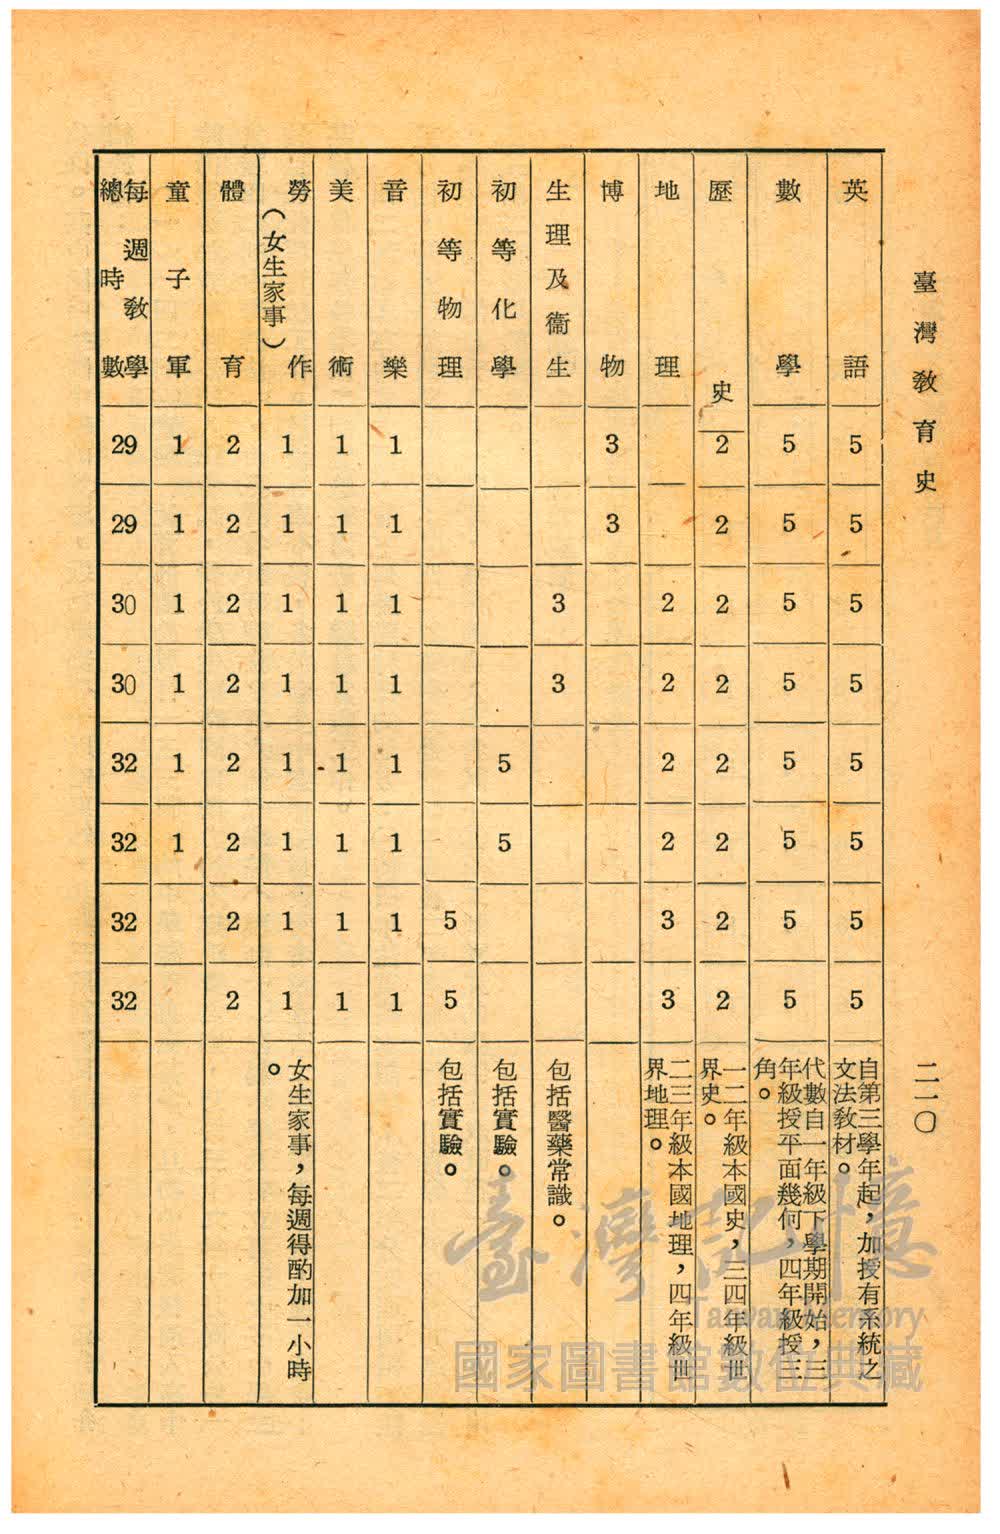 臺灣教育史
二一〇
英語 5 5 5 5 5 5 5 5 自第三學年起，加授有系統之文法教材。
數學 5 5 5 5 5 5 5 5 代數自一年級下學期開始，三年級授平面幾何，四年級授三角。
歷史 2 2 2 2 2 2 2 2 一二年級本國史，三四年級世界史。
地理 2 2 2 2 3 3 二三年級本國地理，四年級世界地理。
博物 3 3
生理及衞生 3 3 包括醫藥常識。
初等化學 5 5 包括實驗。
初等物理 5 5 包括實驗。
音樂 1 1 1 1 1 1 1 1
美術 1 1 1 1 1 1 1 1
勞作（女生家事） 1 1 1 1 1 1 1 1 女生家事，每週得酌加一小時。
體育 2 2 2 2 2 2 2 2
童子軍 1 1 1 1 1 1
每週教學總時數 29 29 30 30 32 32 32 32
臺灣記憶
Taiwan Memory
國家圖書館數位典藏